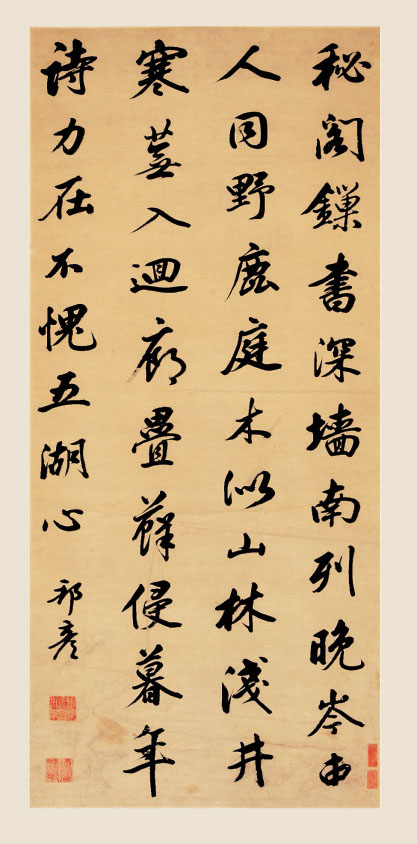 秘閣鏁書深墻南列晚岑由
人同野鹿庭木似山林淺井
寒蕪入迴廊疊蘚侵暮年
詩力在不愧五湖心